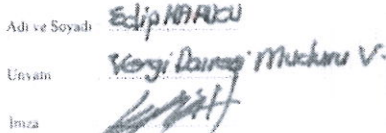 Adı ve Soyadı Edip
Unvanı Vergi Dairesi Müdürü V.
İmza